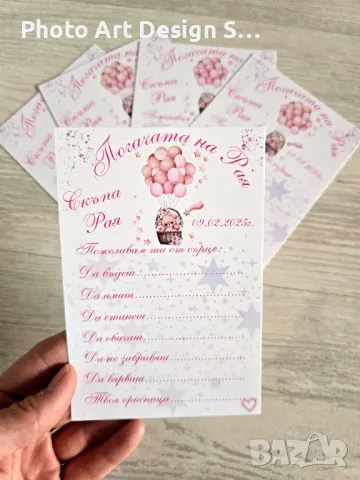 Photo Art Design S...
Погачата на Рая
Скъпа
Рая
09.02.2025г.
Пожелавам ти от сърце:
Да бъдеш
Да имаш
Да станеш
Да обичаш
Да не забравяш
Да вярваш
Твоя орисница
Погачата на
Скъпа
Рая
BAZAR